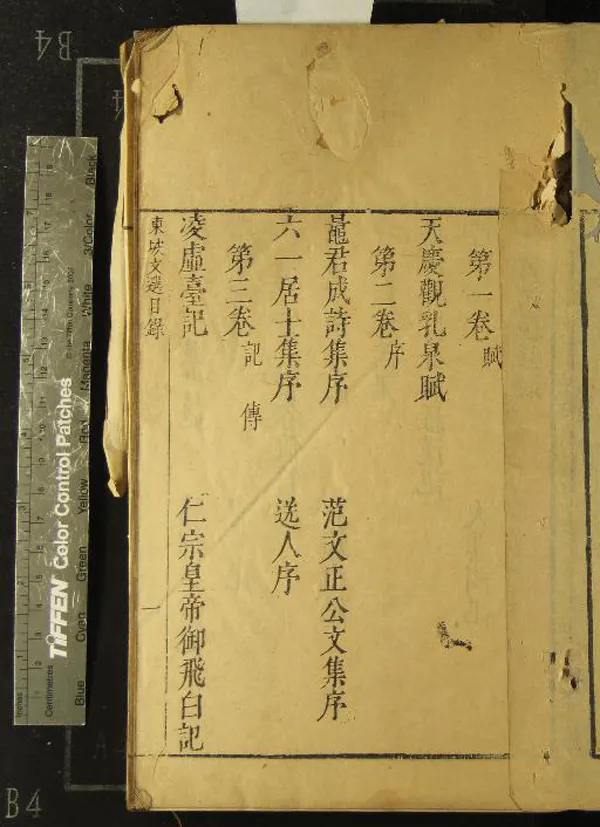 第一卷 賦
天慶觀乳泉賦
第二卷 序
鼂君成詩集序 范文正公文集序
六一居士集序 送人序
第三卷 記 傳
凌虛臺記 仁宗皇帝御飛白記
東坡文選目錄 一
B4
B4
TIFFEN Color Control Patches
© The Tiffen Company, 2007
Blue Cyan Green Yellow Red Magenta White 3/Color Black
Inches
Centimetres